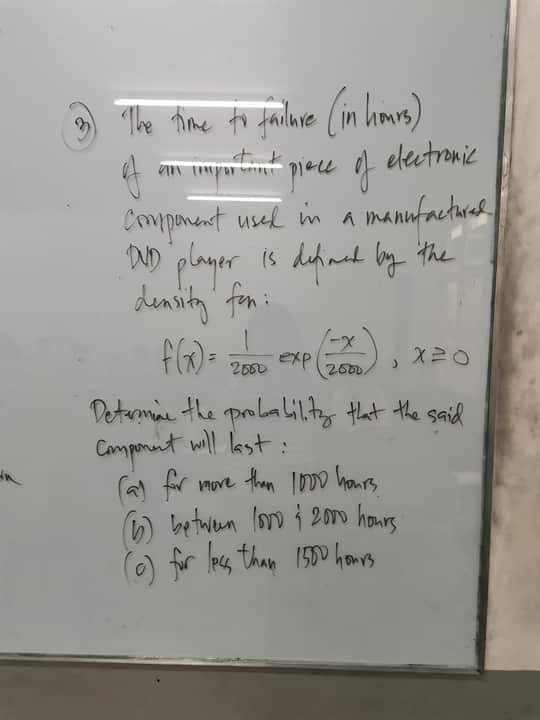 3) The time to failure (in hours)
of an important piece of electronic
component used in a manufactured
DVD player is defined by the
density fcn:
f(x) = 1/2000 exp(-x/2000), x ≥ 0
Determine the probability that the said
component will last:
(a) for more than 1000 hours
(b) between 1000 & 2000 hours
(c) for less than 1500 hours